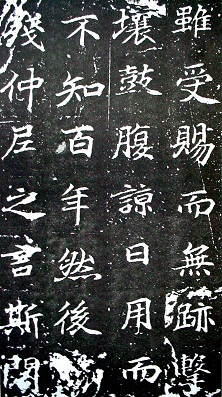 雖受賜而無跡擊
壤鼓腹諒日用而
不知百年然後
殘仲尼之言斯